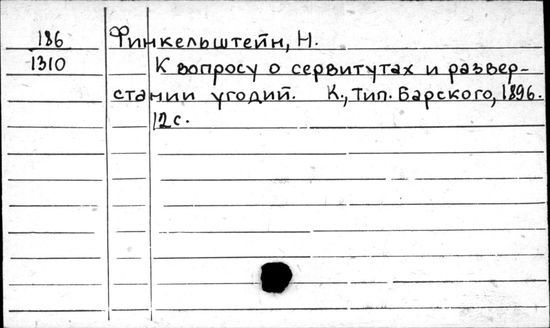 186 Финкельштейн, Н.
1310 К вопросу о сервитутах и развер-
стании угодий. К., Тип. Барского, 1896.
12 с.